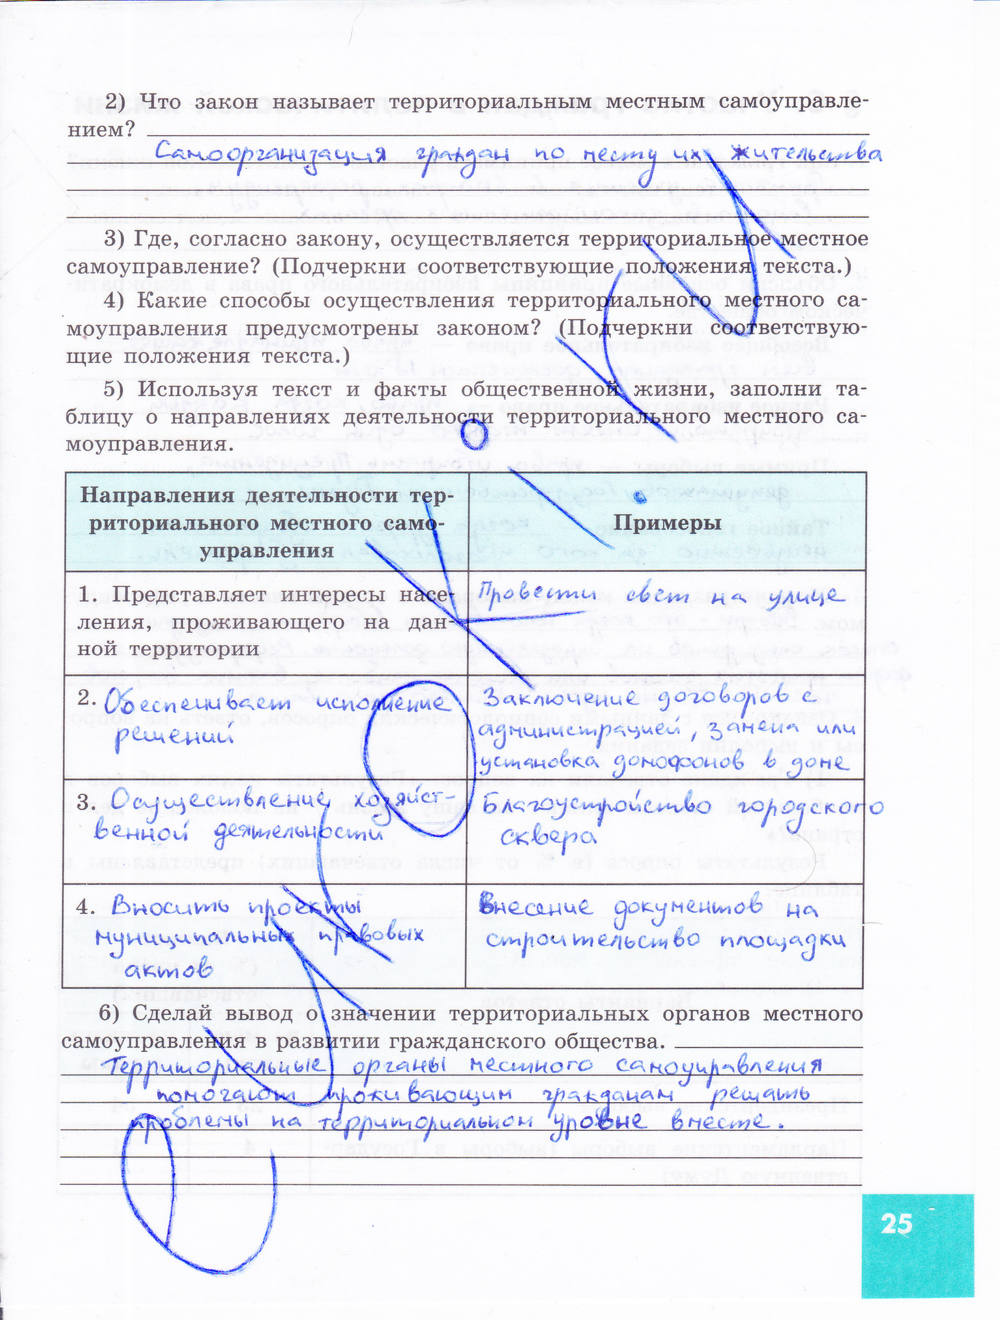 2) Что закон называет территориальным местным самоуправле-
нием?
Самоорганизация граждан по месту их жительства
3) Где, согласно закону, осуществляется территориальное местное
самоуправление? (Подчеркни соответствующие положения текста.)
4) Какие способы осуществления территориального местного са-
моуправления предусмотрены законом? (Подчеркни соответствую-
щие положения текста.)
5) Используя текст и факты общественной жизни, заполни та-
блицу о направлениях деятельности территориального местного са-
моуправления.
Направления деятельности тер-
риториального местного само-
управления
Примеры
1. Представляет интересы насе-
ления, проживающего на дан-
ной территории
Провести свет на улице
2. Обеспечивает исполнение
решений
Заключение договоров с
администрацией, замена или
установка домофонов в доме
3. Осуществление хозяйст-
венной деятельности
Благоустройство городского
сквера
4. Вносить проекты
муниципальных правовых
актов
Внесение документов на
строительство площадки
6) Сделай вывод о значении территориальных органов местного
самоуправления в развитии гражданского общества.
Территориальные органы местного самоуправления
помогают проживающим гражданам решать
проблемы на территориальном уровне вместе.
25